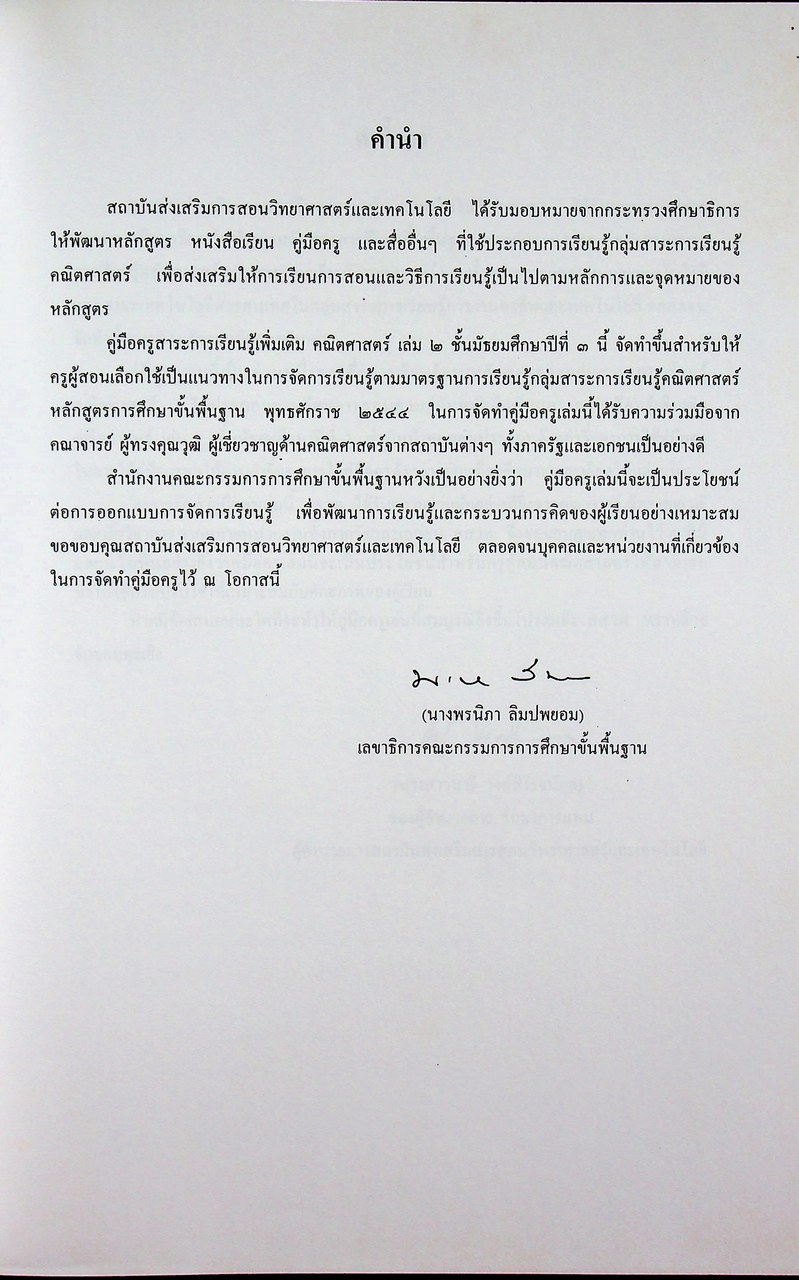 คำนำ
สถาบันส่งเสริมการสอนวิทยาศาสตร์และเทคโนโลยี ได้รับมอบหมายจากกระทรวงศึกษาธิการ
ให้พัฒนาหลักสูตร หนังสือเรียน คู่มือครู และสื่ออื่นๆ ที่ใช้ประกอบการเรียนรู้กลุ่มสาระการเรียนรู้
คณิตศาสตร์ เพื่อส่งเสริมให้การเรียนการสอนและวิธีการเรียนรู้เป็นไปตามหลักการและจุดหมายของ
หลักสูตร
คู่มือครูสาระการเรียนรู้เพิ่มเติม คณิตศาสตร์ เล่ม ๒ ชั้นมัธยมศึกษาปีที่ ๓ นี้ จัดทำขึ้นสำหรับให้
ครูผู้สอนเลือกใช้เป็นแนวทางในการจัดการเรียนรู้ตามมาตรฐานการเรียนรู้กลุ่มสาระการเรียนรู้คณิตศาสตร์
หลักสูตรการศึกษาขั้นพื้นฐาน พุทธศักราช ๒๕๔๔ ในการจัดทำคู่มือครูเล่มนี้ได้รับความร่วมมือจาก
คณาจารย์ ผู้ทรงคุณวุฒิ ผู้เชี่ยวชาญด้านคณิตศาสตร์จากสถาบันต่างๆ ทั้งภาครัฐและเอกชนเป็นอย่างดี
สำนักงานคณะกรรมการการศึกษาขั้นพื้นฐานหวังเป็นอย่างยิ่งว่า คู่มือครูเล่มนี้จะเป็นประโยชน์
ต่อการออกแบบการจัดการเรียนรู้ เพื่อพัฒนาการเรียนรู้และกระบวนการคิดของผู้เรียนอย่างเหมาะสม
ขอขอบคุณสถาบันส่งเสริมการสอนวิทยาศาสตร์และเทคโนโลยี ตลอดจนบุคคลและหน่วยงานที่เกี่ยวข้อง
ในการจัดทำคู่มือครูไว้ ณ โอกาสนี้
(นางพรนิภา ลิมปพยอม)
เลขาธิการคณะกรรมการการศึกษาขั้นพื้นฐาน